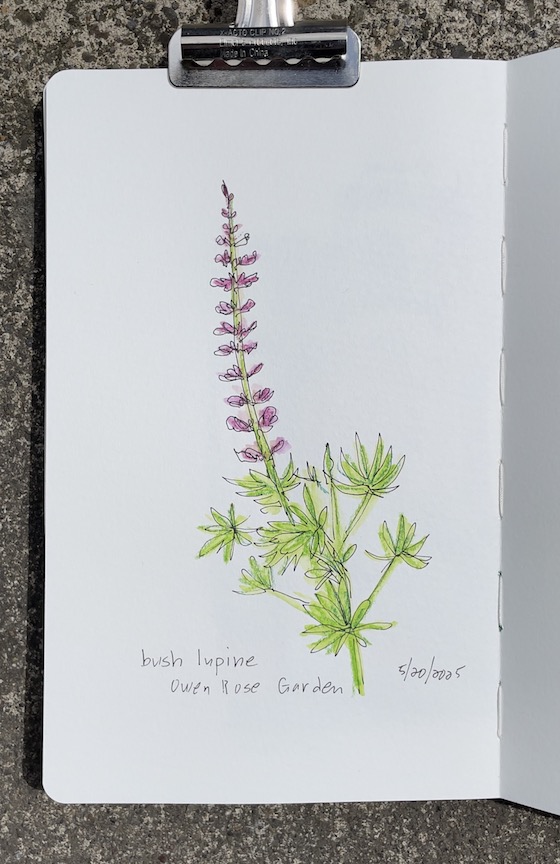 X-ACTO CLIP NO.2
Made in China
bush lupine
Owen Rose Garden
5/20/2025